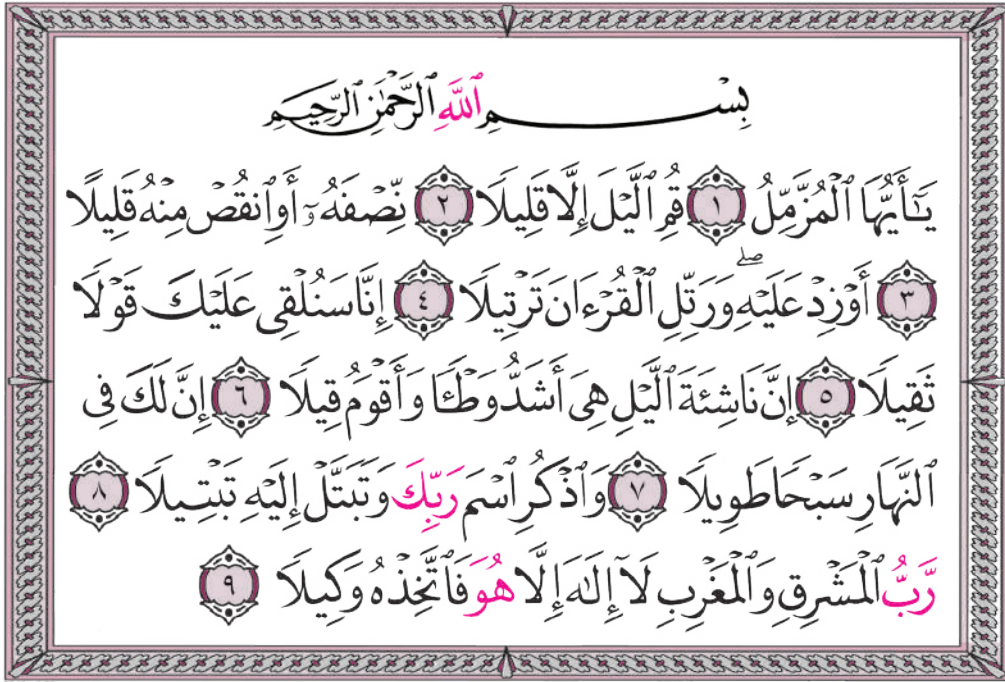 بِسْمِ ٱللَّهِ ٱلرَّحْمَٰنِ ٱلرَّحِيمِ
يَـٰٓأَيُّهَا ٱلْمُزَّمِّلُ ١ قُمِ ٱلَّيْلَ إِلَّا قَلِيلًا ٢ نِّصْفَهُۥٓ أَوِ ٱنقُصْ مِنْهُ قَلِيلًا
٣ أَوْ زِدْ عَلَيْهِۖ وَرَتِّلِ ٱلْقُرْءَانَ تَرْتِيلًا ٤ إِنَّا سَنُلْقِى عَلَيْكَ قَوْلًا
ثَقِيلًا ٥ إِنَّ نَاشِئَةَ ٱلَّيْلِ هِىَ أَشَدُّ وَطْـًٔا وَأَقْوَمُ قِيلًا ٦ إِنَّ لَكَ فِى
ٱلنَّهَارِ سَبْحًا طَوِيلًا ٧ وَٱذْكُرِ ٱسْمَ رَبِّكَ وَتَبَتَّلْ إِلَيْهِ تَبْتِيلًا ٨
رَّبُّ ٱلْمَشْرِقِ وَٱلْمَغْرِبِ لَآ إِلَـٰهَ إِلَّا هُوَ فَٱتَّخِذْهُ وَكِيلًا ٩